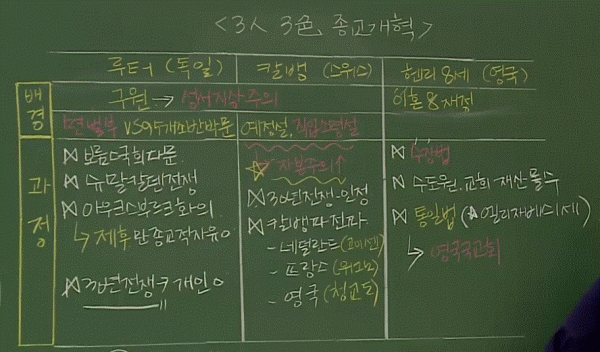 <3人 3色, 종교개혁>
루터 (독일)
칼뱅 (스위스)
헨리 8세 (영국)
배경
구원 → 성서지상주의
이혼 & 재정
면벌부 VS 95개조반박문
예정설, 직업소명설
과정
보름스국회파문
슈말칼덴전쟁
아우크스부르크화의
↳ 제후만 종교적자유O
30년전쟁 → 개인O
자본주의↑
30년전쟁-인정
칼뱅파전파
- 네덜란드 (고이센)
- 프랑스 (위그노)
- 영국 (청교도)
수장법
수도원, 교회 재산몰수
통일법 (엘리자베스1세)
↳ 영국국교회